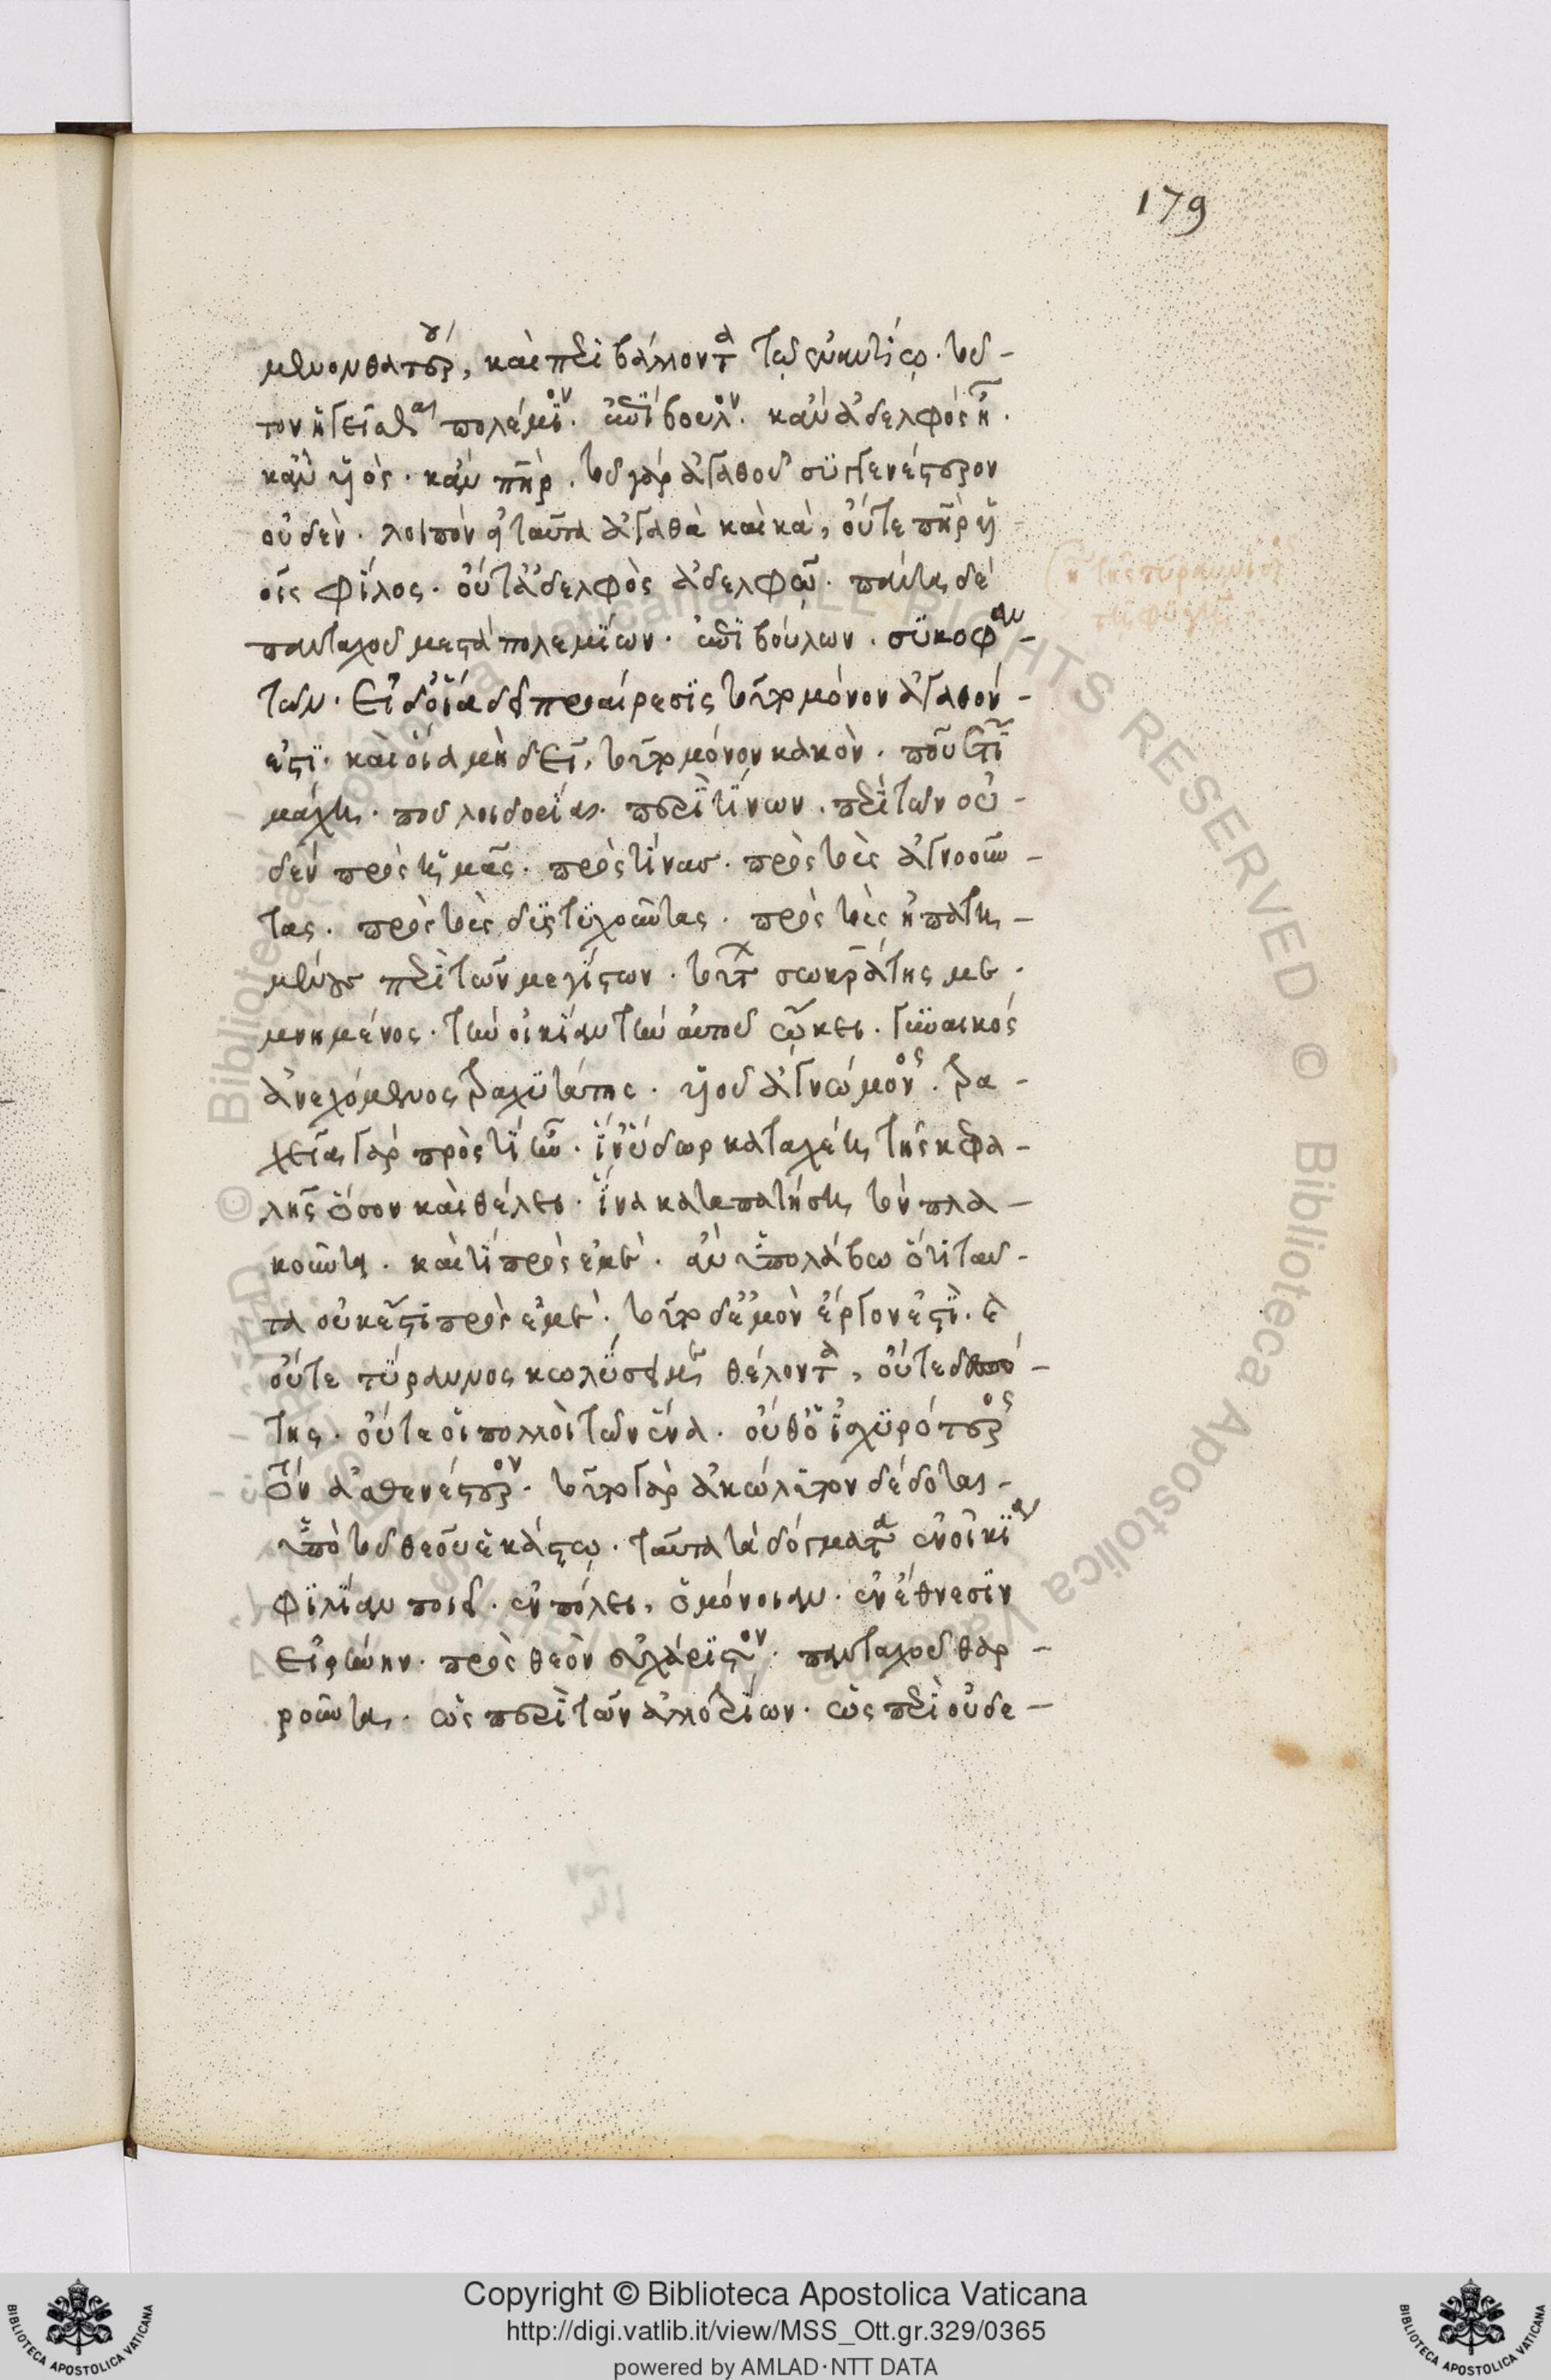 179
μενον θατέρου, καὶ περιβάλλοντα τῷ ἐναντίῳ. τοῦ-
τον ἡγεῖσθαι πολέμϊον. ἐπίβουλον. κἂν ἀδελφὸς ἦ.
κἂν υἱὸς. κἂν πηρ. τοῦ γὰρ ἀγαθοῦ συγγενέστερον
οὐδὲν. λοιπὸν εἰ ταῦτα ἀγαθὰ καὶ κακὰ, οὔτε πηρ υἱ
οῖς φίλος. οὔτ' ἀδελφὸς ἀδελφῶ. πάντα δὲ
πανταχοῦ μεστὰ πολεμίων. ἐπιβούλων. συκοφαν-
τῶν. Εἰ δ' οἵα δεῖ προαίρεσις τοῦτο μόνον ἀγαθόν-
ἐστι. καὶ οἵα μὴ δεῖ, τοῦτο μόνον κακὸν. ποῦ ἔτι
μάχη. ποῦ λοιδορία. περὶ τίνων. περὶ τῶν οὐ-
δὲν πρὸς ἡμᾶς. πρὸς τίνας. πρὸς τοὺς ἀγνοοῦν-
τας. πρὸς τοὺς δυστυχοῦντας. πρὸς τοὺς ἠπατη-
μένους περὶ τῶν μεγίστων. τούτων σωκράτης με-
μνημένος. τὴν οἰκίαν τὴν αὐτοῦ ᾤκει. γυναικὸς
ἀνεχόμενος τραχυτάτης. υἱοῦ ἀγνώμονος. τρα-
χεῖα γὰρ πρὸς τί ἦν. ἵν' ὕδωρ καταχέη τῆς κεφα-
λῆς ὅσον καὶ θέλει. ἵνα καταπατήση τὸν πλα-
κοῦντα. καὶ τί πρὸς ἐμὲ. ἂν ὑπολάβω ὅτι ταῦ-
τα οὐκ ἔστι πρὸς ἐμὲ. τοῦτο δ' ἐμὸν ἔργον ἐστὶ. καὶ
οὔτε τύραννος κωλύσει με θέλοντα, οὔτε δεσπό-
της. οὔτε οἱ πολλοὶ τὸν ἕνα. οὔθ' ὁ ἰσχυρότερος
τὸν ἀσθενέστερον. τοῦτο γὰρ ἀκώλυτον δέδοται-
ὑπὸ τοῦ θεοῦ ἑκάστῳ. ταῦτα τὰ δόγματα ἐν οἰκίᾳ
φιλίαν ποιεῖ. ἐν πόλει, ὁμόνοιαν. ἐν ἔθνεσιν
εἰρήνην. πρὸς θεὸν εὐχάριστον. πανταχοῦ θαρ-
ροῦντα. ὡς περὶ τῶν ἀλλοτρίων. ὡς περὶ οὐδε-
Copyright © Biblioteca Apostolica Vaticana
http://digi.vatlib.it/view/MSS_Ott.gr.329/0365
powered by AMLAD·NTT DATA